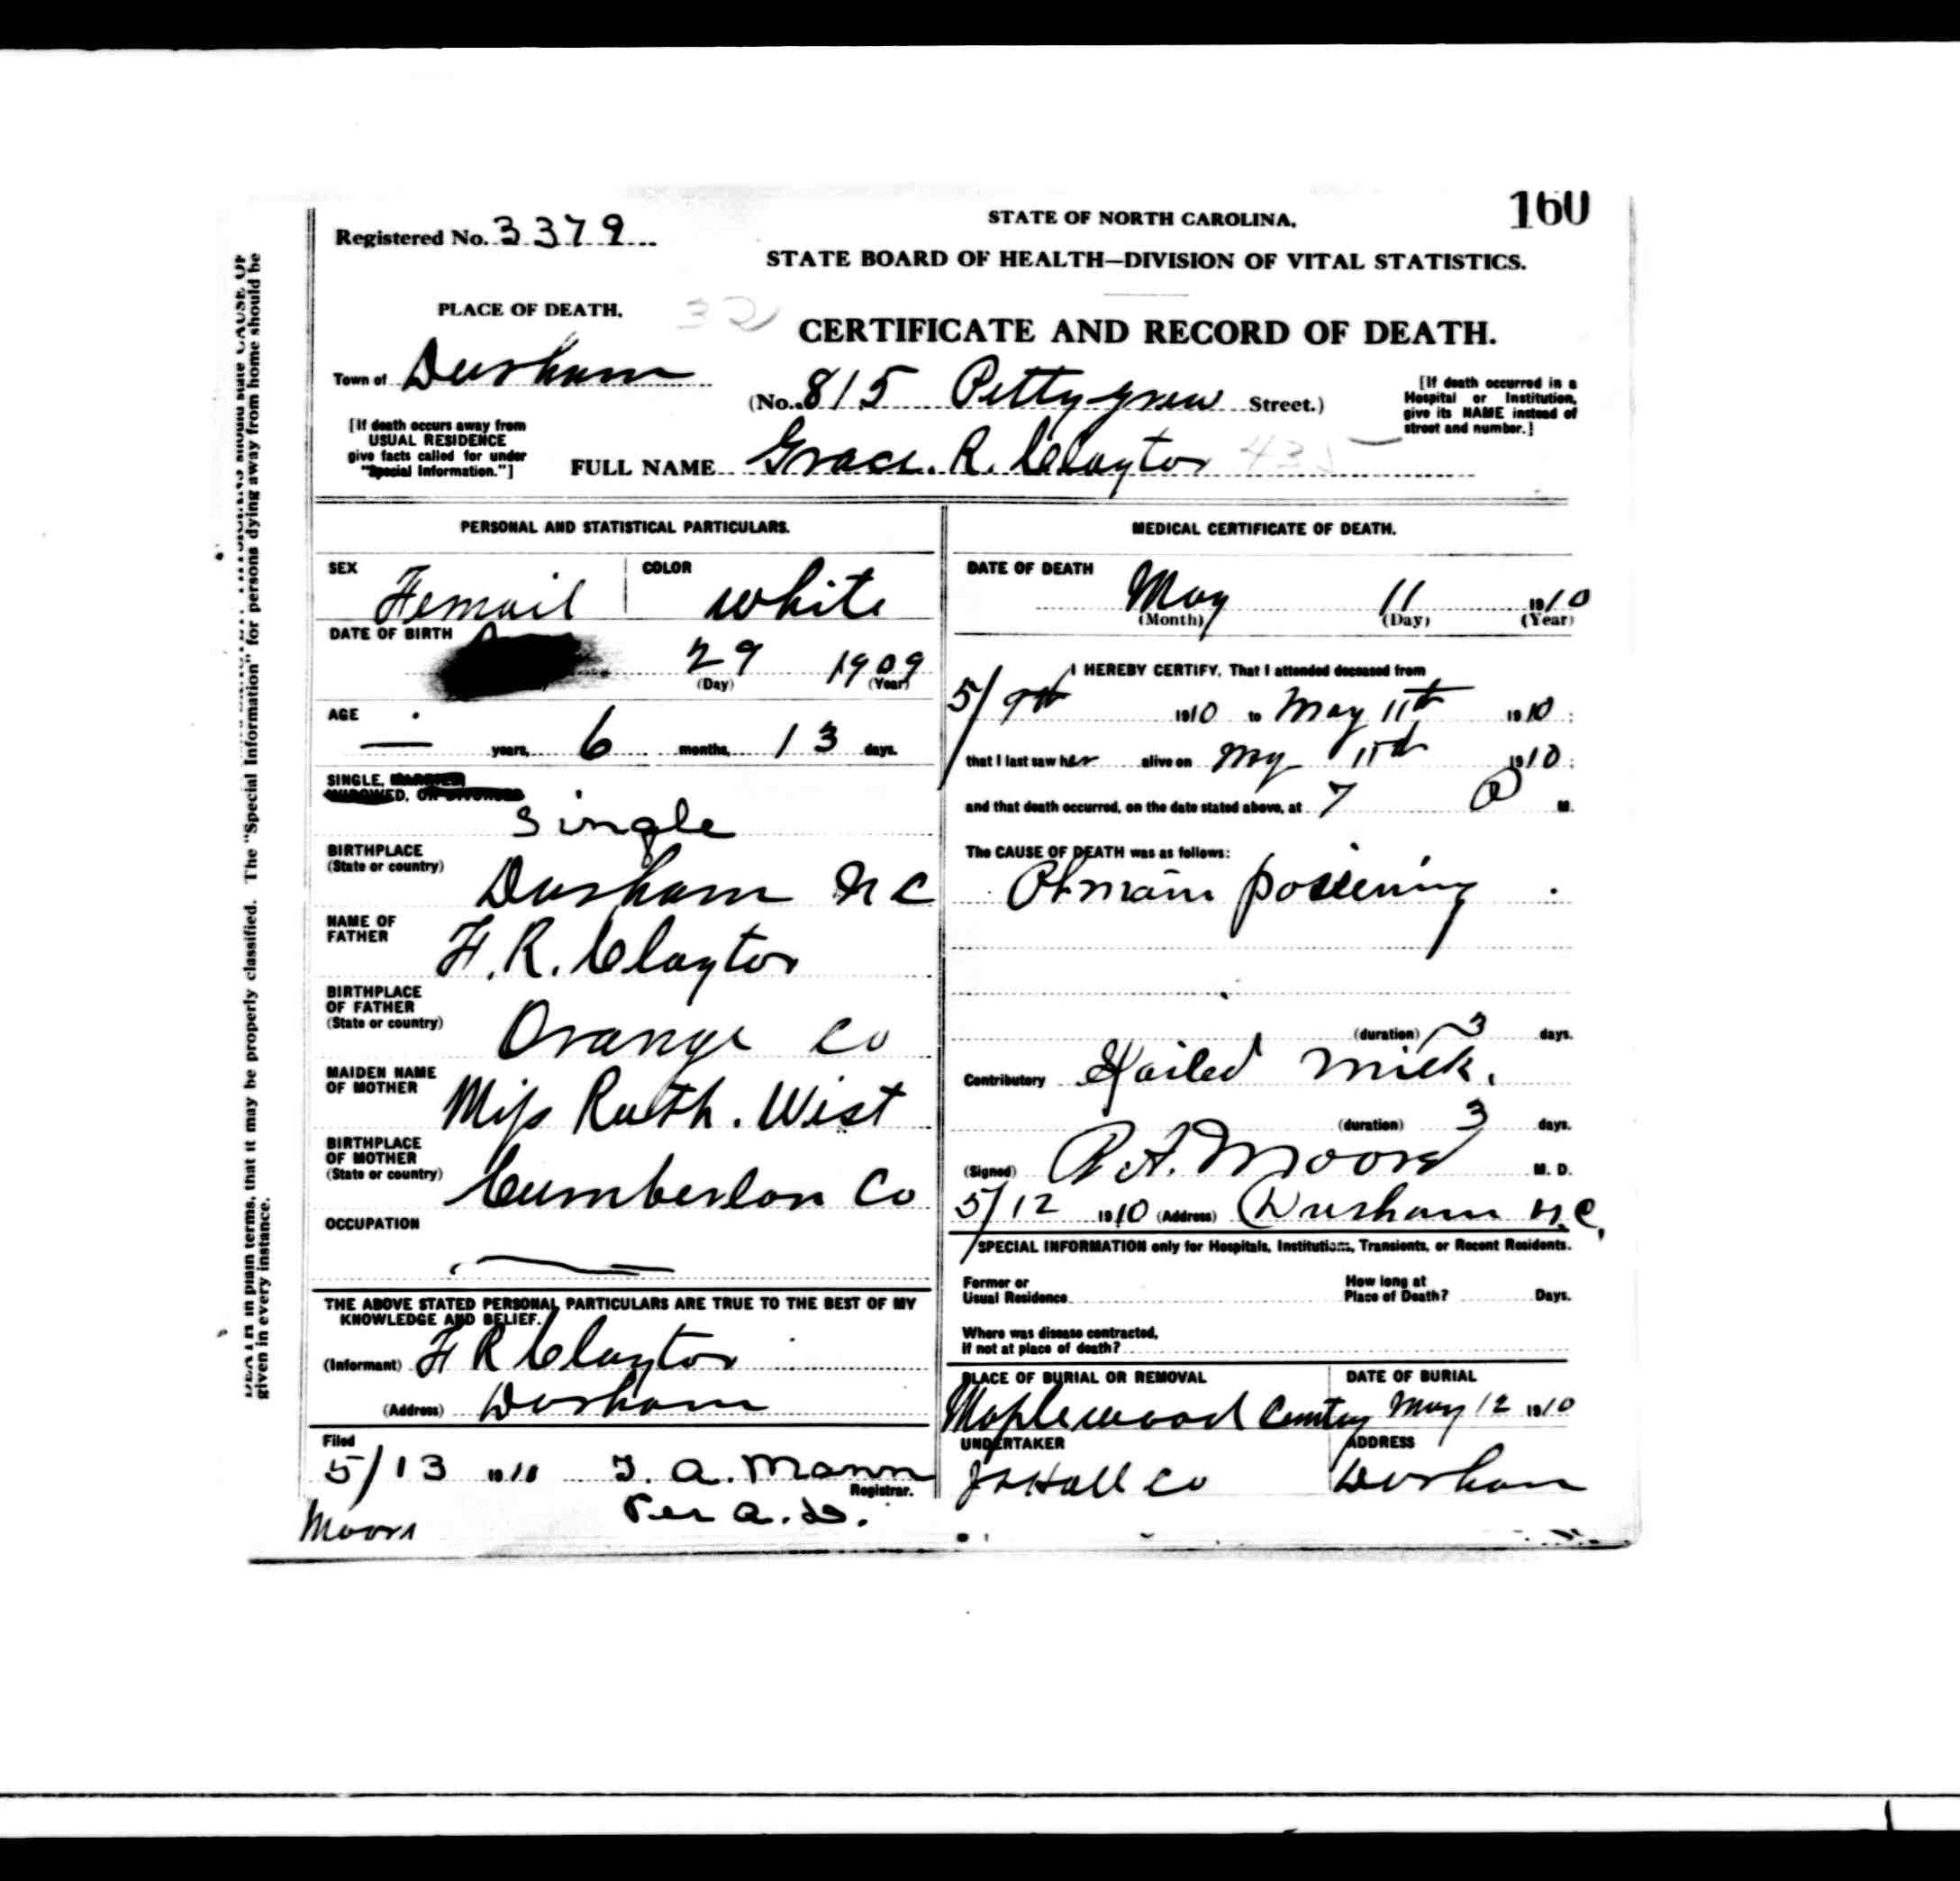 160
Registered No. 3379
STATE OF NORTH CAROLINA,
STATE BOARD OF HEALTH—DIVISION OF VITAL STATISTICS.
PLACE OF DEATH,
32
CERTIFICATE AND RECORD OF DEATH.
Town of Durham
(No. 815 Pettygrew Street.)
[If death occurred in a
Hospital or Institution,
give its NAME instead of
street and number.]
[If death occurs away from
USUAL RESIDENCE
give facts called for under
"Special Information."]
FULL NAME Grace. R. Clayton
PERSONAL AND STATISTICAL PARTICULARS.
SEX Femail
COLOR white
DATE OF BIRTH
29 1909
(Day) (Year)
AGE
— years, 6 months, 13 days.
SINGLE, MARRIED,
WIDOWED, OR DIVORCED
Single
BIRTHPLACE
(State or country)
Durham N C
NAME OF
FATHER
F. R. Clayton
BIRTHPLACE
OF FATHER
(State or country)
Orange Co
MAIDEN NAME
OF MOTHER
Miss Ruth. West
BIRTHPLACE
OF MOTHER
(State or country)
Cumberlan Co
OCCUPATION
THE ABOVE STATED PERSONAL PARTICULARS ARE TRUE TO THE BEST OF MY
KNOWLEDGE AND BELIEF.
(Informant) F R Clayton
(Address) Durham
Filed
5/13 1910 T. A. Mann
Registrar.
Per A. D.
Moore
MEDICAL CERTIFICATE OF DEATH.
DATE OF DEATH
May 11 1910
(Month) (Day) (Year)
I HEREBY CERTIFY, That I attended deceased from
5/9th 1910 to May 11th 1910;
that I last saw her alive on My 11th 1910;
and that death occurred, on the date stated above, at 7 a M.
The CAUSE OF DEATH was as follows:
Ptmain
(duration) 3 days.
Contributory milk.
(duration) 3 days.
(Signed) R. A. Moore M. D.
5/12 1910 (Address) Durham N.C.
SPECIAL INFORMATION only for Hospitals, Institutions, Transients, or Recent Residents.
Former or
Usual Residence
How long at
Place of Death? Days.
Where was disease contracted,
If not at place of death?
PLACE OF BURIAL OR REMOVAL
Maplewood
DATE OF BURIAL
May 12 1910
UNDERTAKER
Hall Co
ADDRESS
Durham
in plain terms, that it may be properly classified. The "Special Information" for persons dying away from home should be
given in every instance.